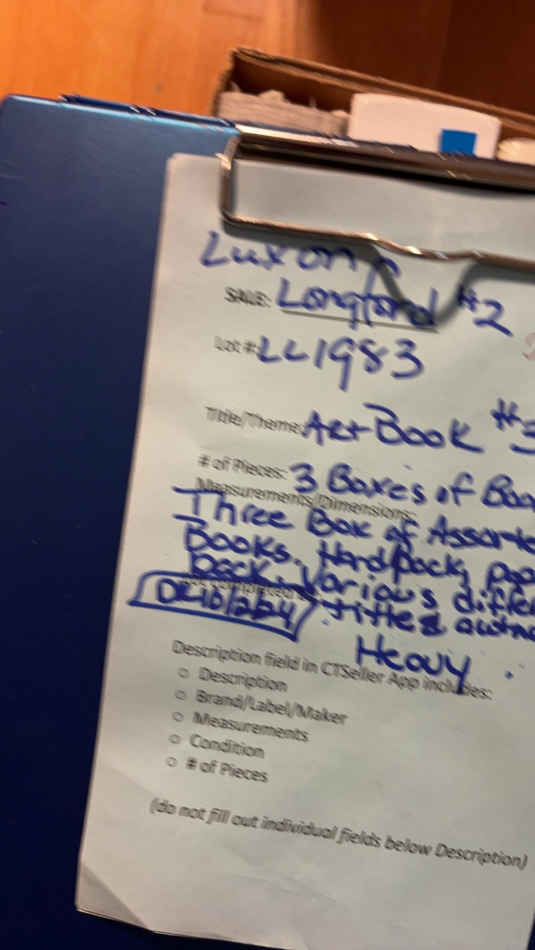 SALE: Longford #2
Lot #: LL1983
Title/Theme: Art Book #3
# of Pieces: 3 Boxes of Boo
Measurements/Dimensions:
Three Box of Assorte
Books. Hardback, pap
back. Various differ
titles autho
Heavy.
Description field in CTSeller App includes:
○ Description
○ Brand/Label/Maker
○ Measurements
○ Condition
○ # of Pieces
(do not fill out individual fields below Description)